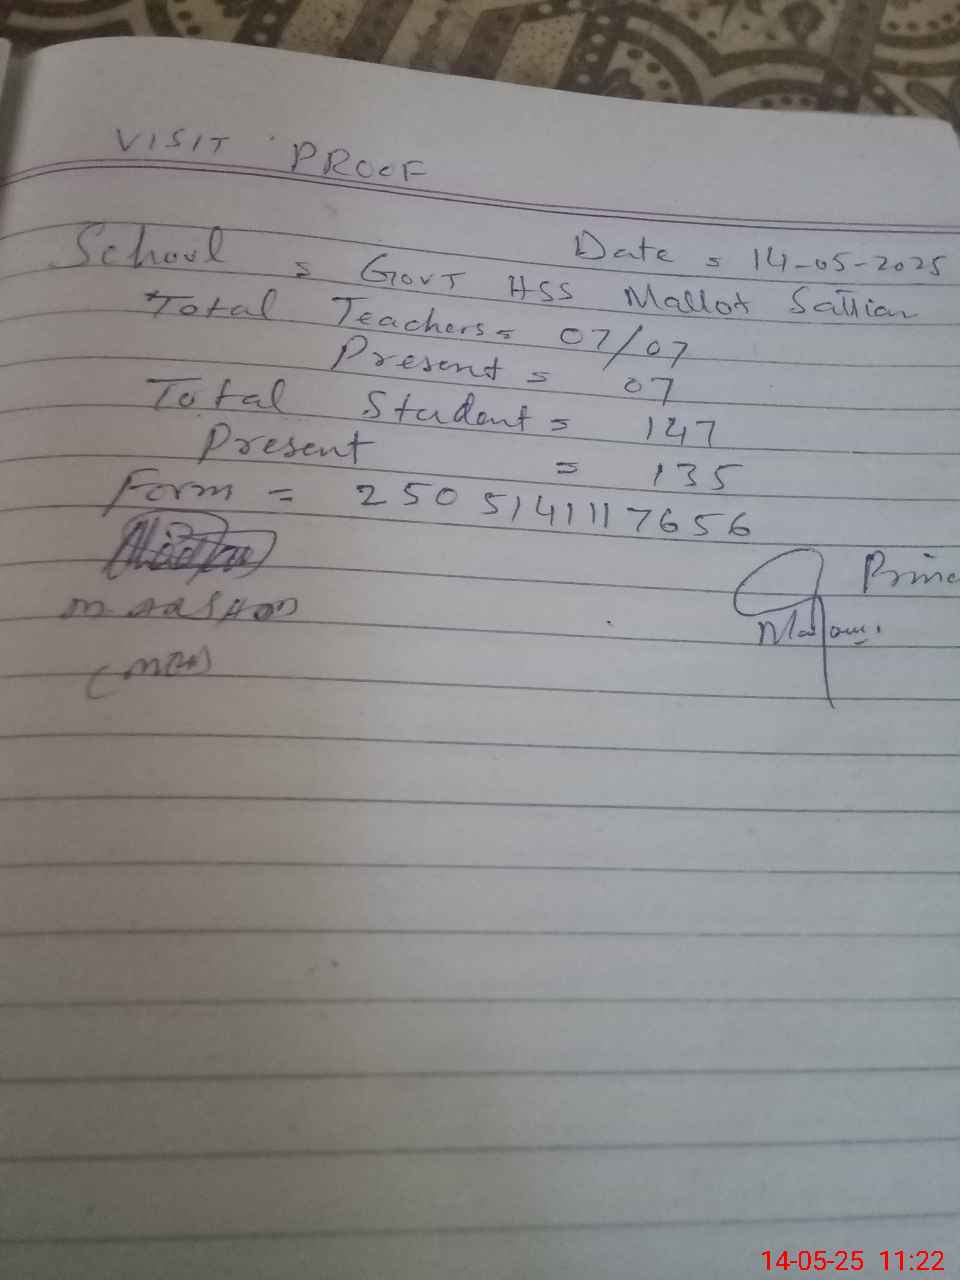 VISIT PROOF
Date = 14-05-2025
School = Govt HSS Mallot Sattian
Total Teachers = 07/07
Present = 07
Total Student = 147
Present = 135
Form = 2505141117656
14-05-25 11:22